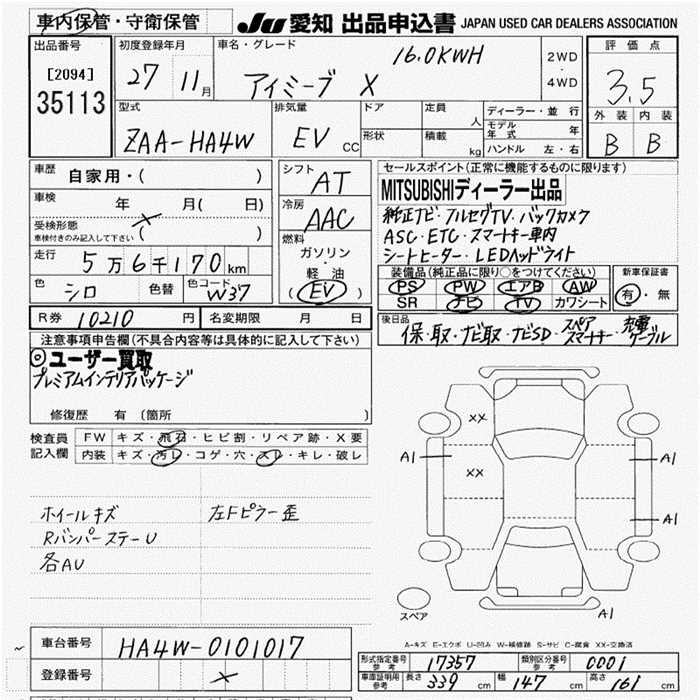 車内保管・守衛保管 JU 愛知 出品申込書 JAPAN USED CAR DEALERS ASSOCIATION
出品番号 [2094] 35113
初度登録年月 27 11月
車名・グレード 16.0KWH アイミーブ X
2WD・4WD
評価点 3.5
外装 B 内装 B
型式 ZAA-HA4W
排気量 EV CC
ドア 形状
定員 人
積載 kg
ディーラー・並行
モデル年式 年
ハンドル 左・右
車歴 自家用・( )
車検 年 月( 日)
受検形態 車検付きのみ記入して下さい ( )
走行 5万6千170km
色 シロ 色替 色コード W37
シフト AT
冷房 AAC
燃料 ガソリン・軽油 (EV)
セールスポイント(正常に機能するものに限ります)
MITSUBISHIディーラー出品
純正ナビ・フルセグTV・バックカメラ
ASC・ETC・スマートキー車内
シートヒーター・LEDヘッドライト
装備品(純正品に限り○をつけてください)
PS PW エアB AW
SR ナビ TV カワシート
新車保証書 有・無
R券 10210円 名変期限 月 日
後日品 保・取・ナビ取・ナビSD・スペアスマートキー・充電ケーブル
注意事項申告欄(不具合内容等は具体的に記入して下さい)
◎ユーザー買取
プレミアムインテリアパッケージ
修復歴 有 (箇所 )
検査員記入欄
FW キズ・飛石・ヒビ割・リペア跡・X要
内装 キズ・汚レ・コゲ・穴・スレ・キレ・破レ
ホイールキズ 左Fピラー歪
RバンパーステーU
各AU
XX
A1 XX A1
A1
スペア A1
A-キズ E-エクボ U-凹み W-補修跡 S-サビ C-腐食 XX-交換済
車台番号 HA4W-0101017
登録番号
形式指定番号 参考 17357 類別区分番号 参考 0001
車庫証明用 参考 長さ 339cm 幅 147cm 高さ 161cm